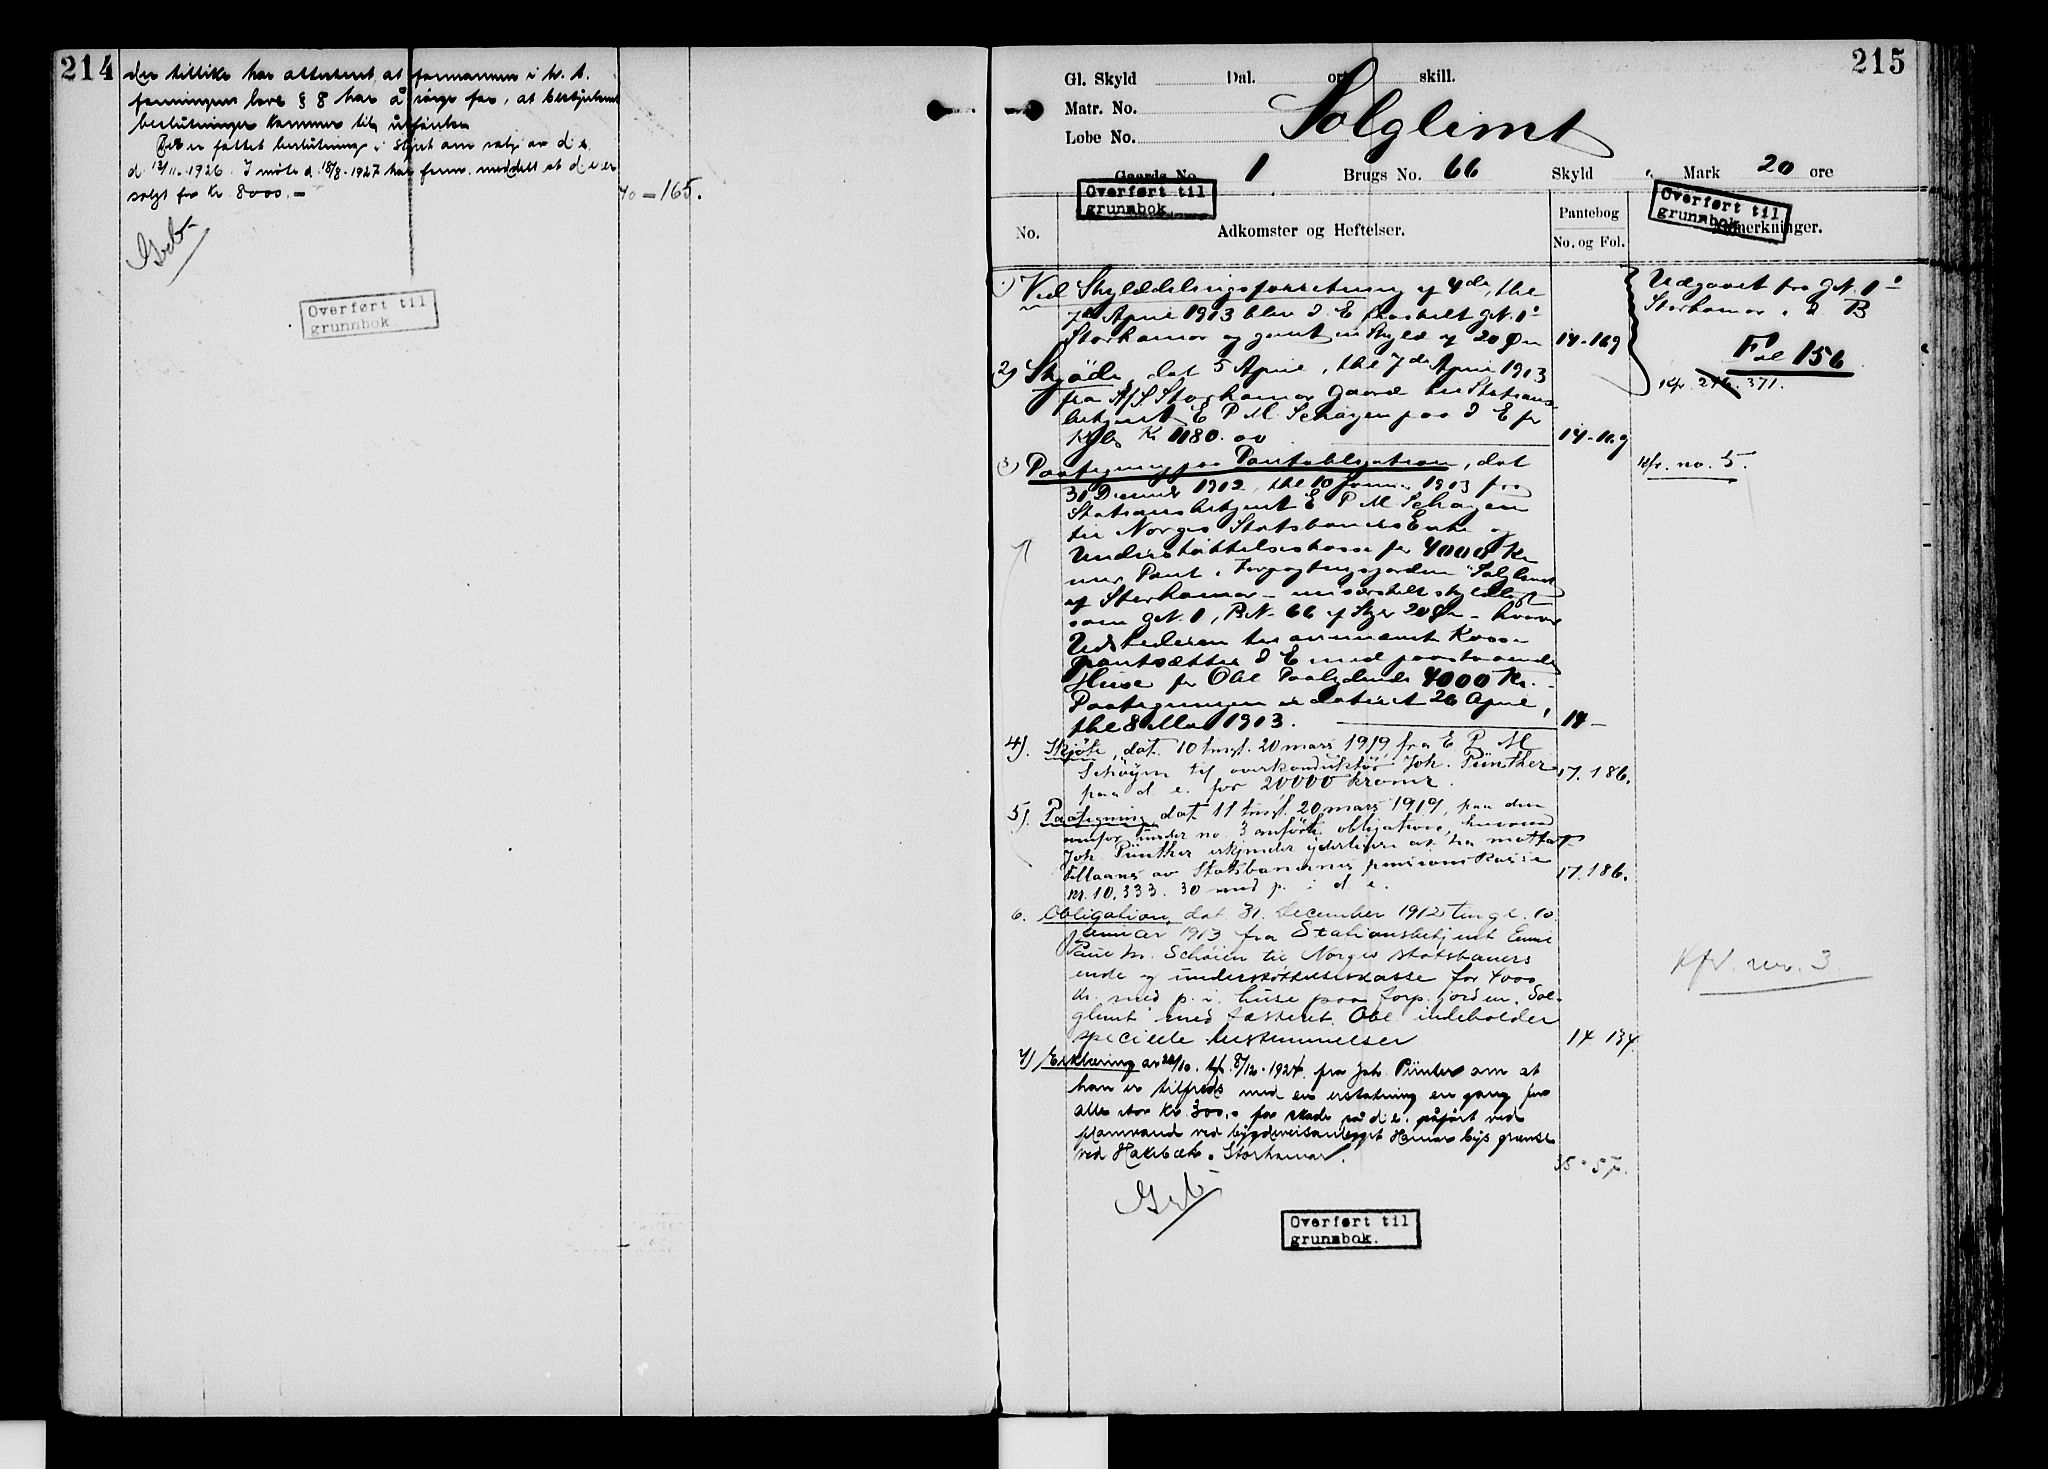 214
der tillike har attestert at formannen i h. t.
foreningens love § 8 har å sørge for, at bestyrelsens
beslutninger kommer til utførelse
Det er fattet beslutning i styret om salg av d. e.
d. 13/11-1926. I møte d. 18/8-1927 har form. meddelt at d. e. er
solgt for kr. 8000.-
70-165.
Overført til
grunnbok
215
Gl. Skyld Dal. ort skill.
Matr. No.
Løbe No.
Solglimt
Gaards No. 1 Brugs No. 66 Skyld " Mark 20 øre
Overført til
grunnbok
Overført til
grunnbok
No.
Adkomster og Heftelser.
Pantebog
No. og Fol.
Anmerkninger.
1) Ved Skylddelingsforretning af 4de, thl
7de April 1913 blev d. E. fraskilt gN. 1
Storhamar og givet en Skyld af 20 Øre
14-169
Udgaaet fra gN. 1
Storhamar, i B
Fol 156
Kfr. 371.
2) Skjøde, dat 5 April, thl 7de April 1913
fra A/S Storhamar Gaard til Stations
betjent E P M Schøyen paa d E for
Kjøbs Kr 1180.00
14-169
3) Paategning paa Pantobligation, dat
31 December 1912, thl 10 Januar 1913 fra
Stationsbetjent E P M Schøyen
til Norges Statsbaners Enke og
Understøttelseskasse for 4000 Kr
mod Pant i Forpagtningsjorden "Solglimt"
af Storhamar - nu særskilt skyldlagt
som gN. 1, BN. 66 af Skyld 20 Øre - hvorved
Udstederen til anmeldte Kasse
pantsætter d E med paastaaende
Huse for Obl Paalydende 4000 Kr.
Paategningen er dateret 26 April,
thl 8 Mai 1913.
14-
Kfr. no. 5.
4). Skjøte, dat. 10 tingl. 20 mars 1919 fra E P M
Schøyen til overkonduktør Joh. Pünther
paa d. e. for 20000 kroner.
17.186.
5). Paategning dat. 11 tingl. 20 mars 1919, paa den
ovenfor under no. 3 anførte obligation, hvorved
Joh. Pünther erkjender yderligere at ha mottat
tillaans av Statsbanernes pensionskasse
kr. 10.333.30 med p. i d. e.
17.186.
6. Obligation, dat. 31. December 1912 tingl. 10.
Januar 1913 fra Stationsbetjent Emil
Paul M. Schøien til Norges statsbaners
enke og understøttelseskasse for 4000
kr. med p. i huse paa forp. jorden "Sol-
glimt" med festeret. Obl. indeholder
specielle bestemmelser
14 134.
Kfr. no. 3.
7) Erklæring av 24/10. tgl. 8/12-1924 fra Joh. Pünter om at
han er tilfreds med en erstatning en gang for
alle stor kr. 300,- for skade på d. e. påført ved
flomvand ved bygdeveisanlegget Hamar bys grænse
ved Hakebæk - Storhamar.
35-57.
Overført til
grunnbok.